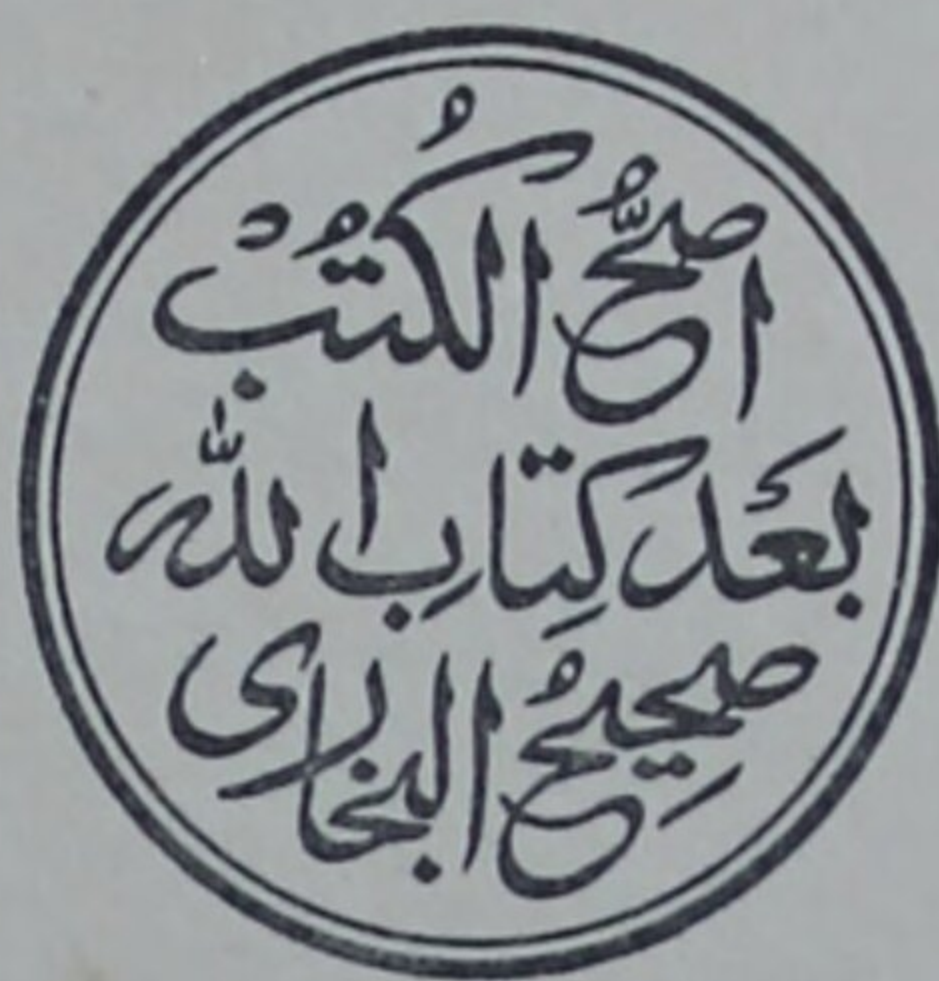 اصحُّ الكُتُبْ
بَعْدَ كِتابِ اللّٰه
صحِيحُ البخارى